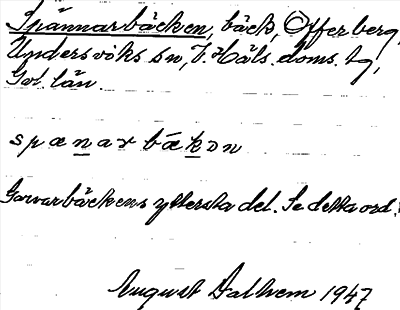 Spännarbäcken, bäck, Offerberg,
Undersviks sn, V. Häls. doms. tg,
Gvl. län.
spænar bækən
Garvarbäckens yttersta del. Se detta ord.
August Dalhem 1947